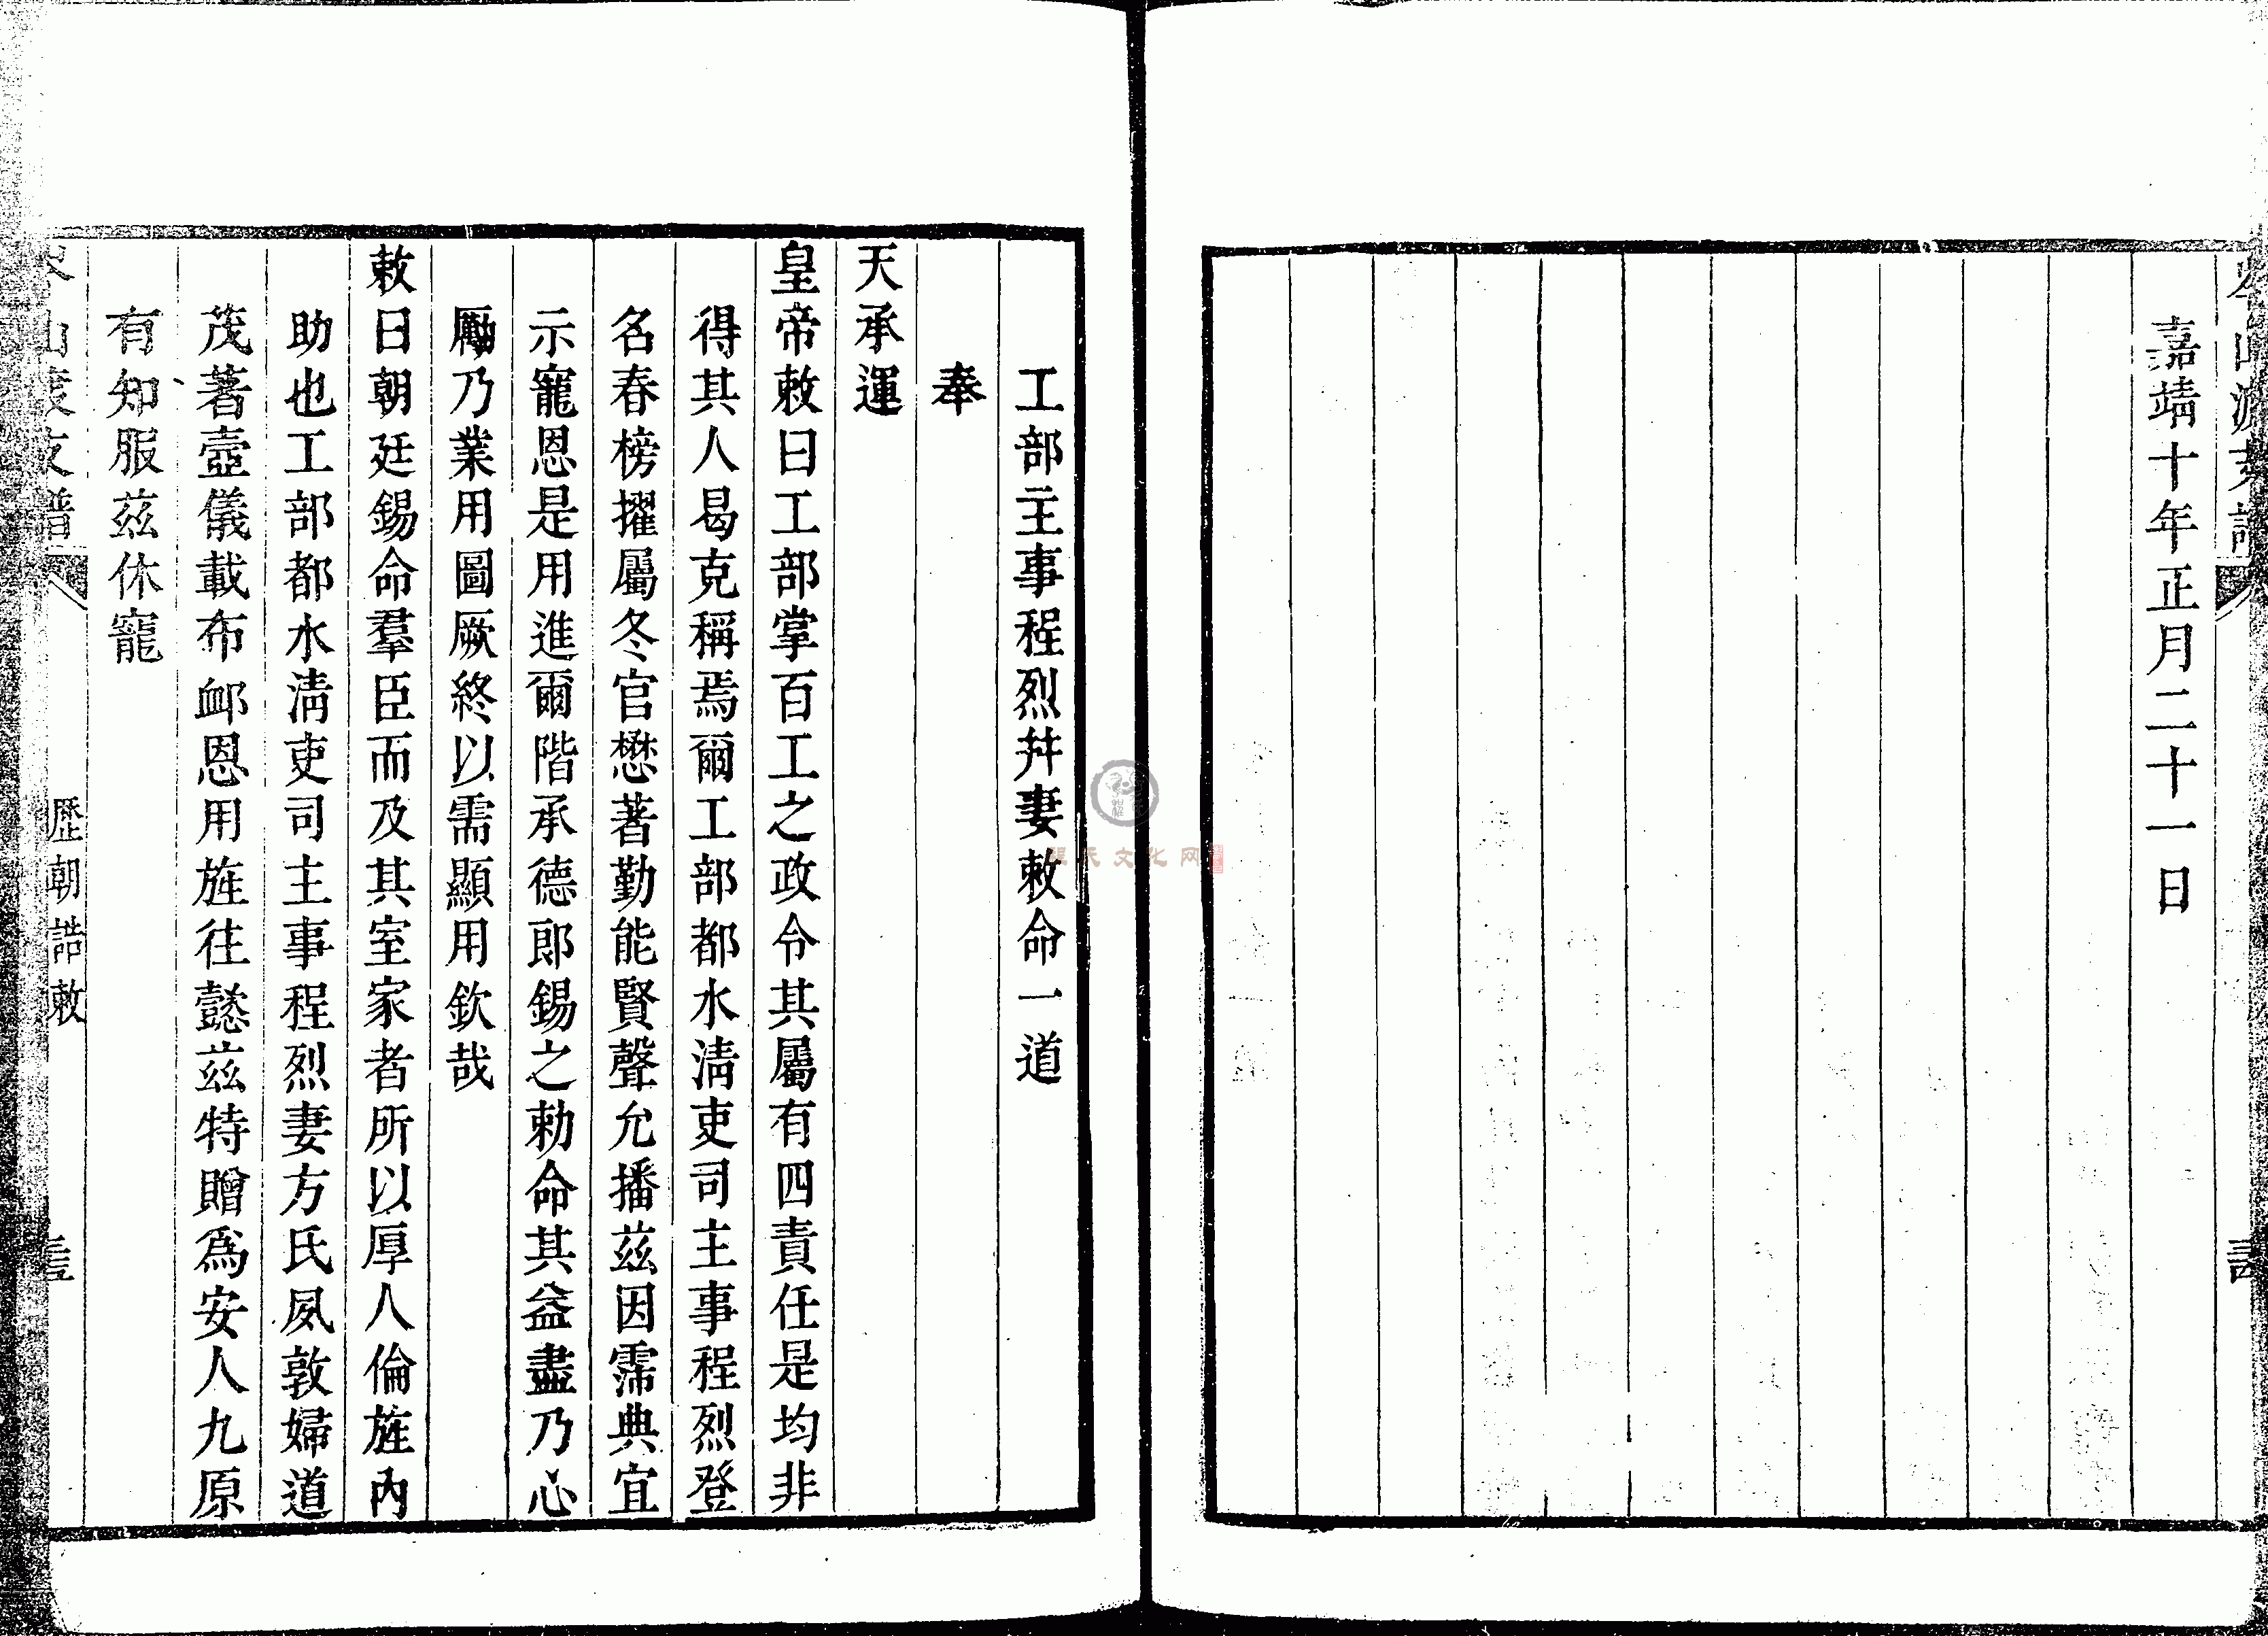 嘉靖十年正月二十一日
工部主事程烈幷妻敕命一道
奉
天承運
皇帝敕曰工部掌百工之政令其屬有四責任是均非
得其人曷克稱焉爾工部都水淸吏司主事程烈登
名春榜擢屬冬官懋著勤能賢聲允播茲因霈典宜
示寵恩是用進爾階承德郎錫之勅命其益盡乃心
勵乃業用圖厥終以需顯用欽哉
敕曰朝廷錫命羣臣而及其室家者所以厚人倫旌內
助也工部都水淸吏司主事程烈妻方氏夙敦婦道
茂著壼儀載布䘏恩用旌往懿茲特贈爲安人九原
有知服茲休寵
歷朝誥敕
程氏文化网